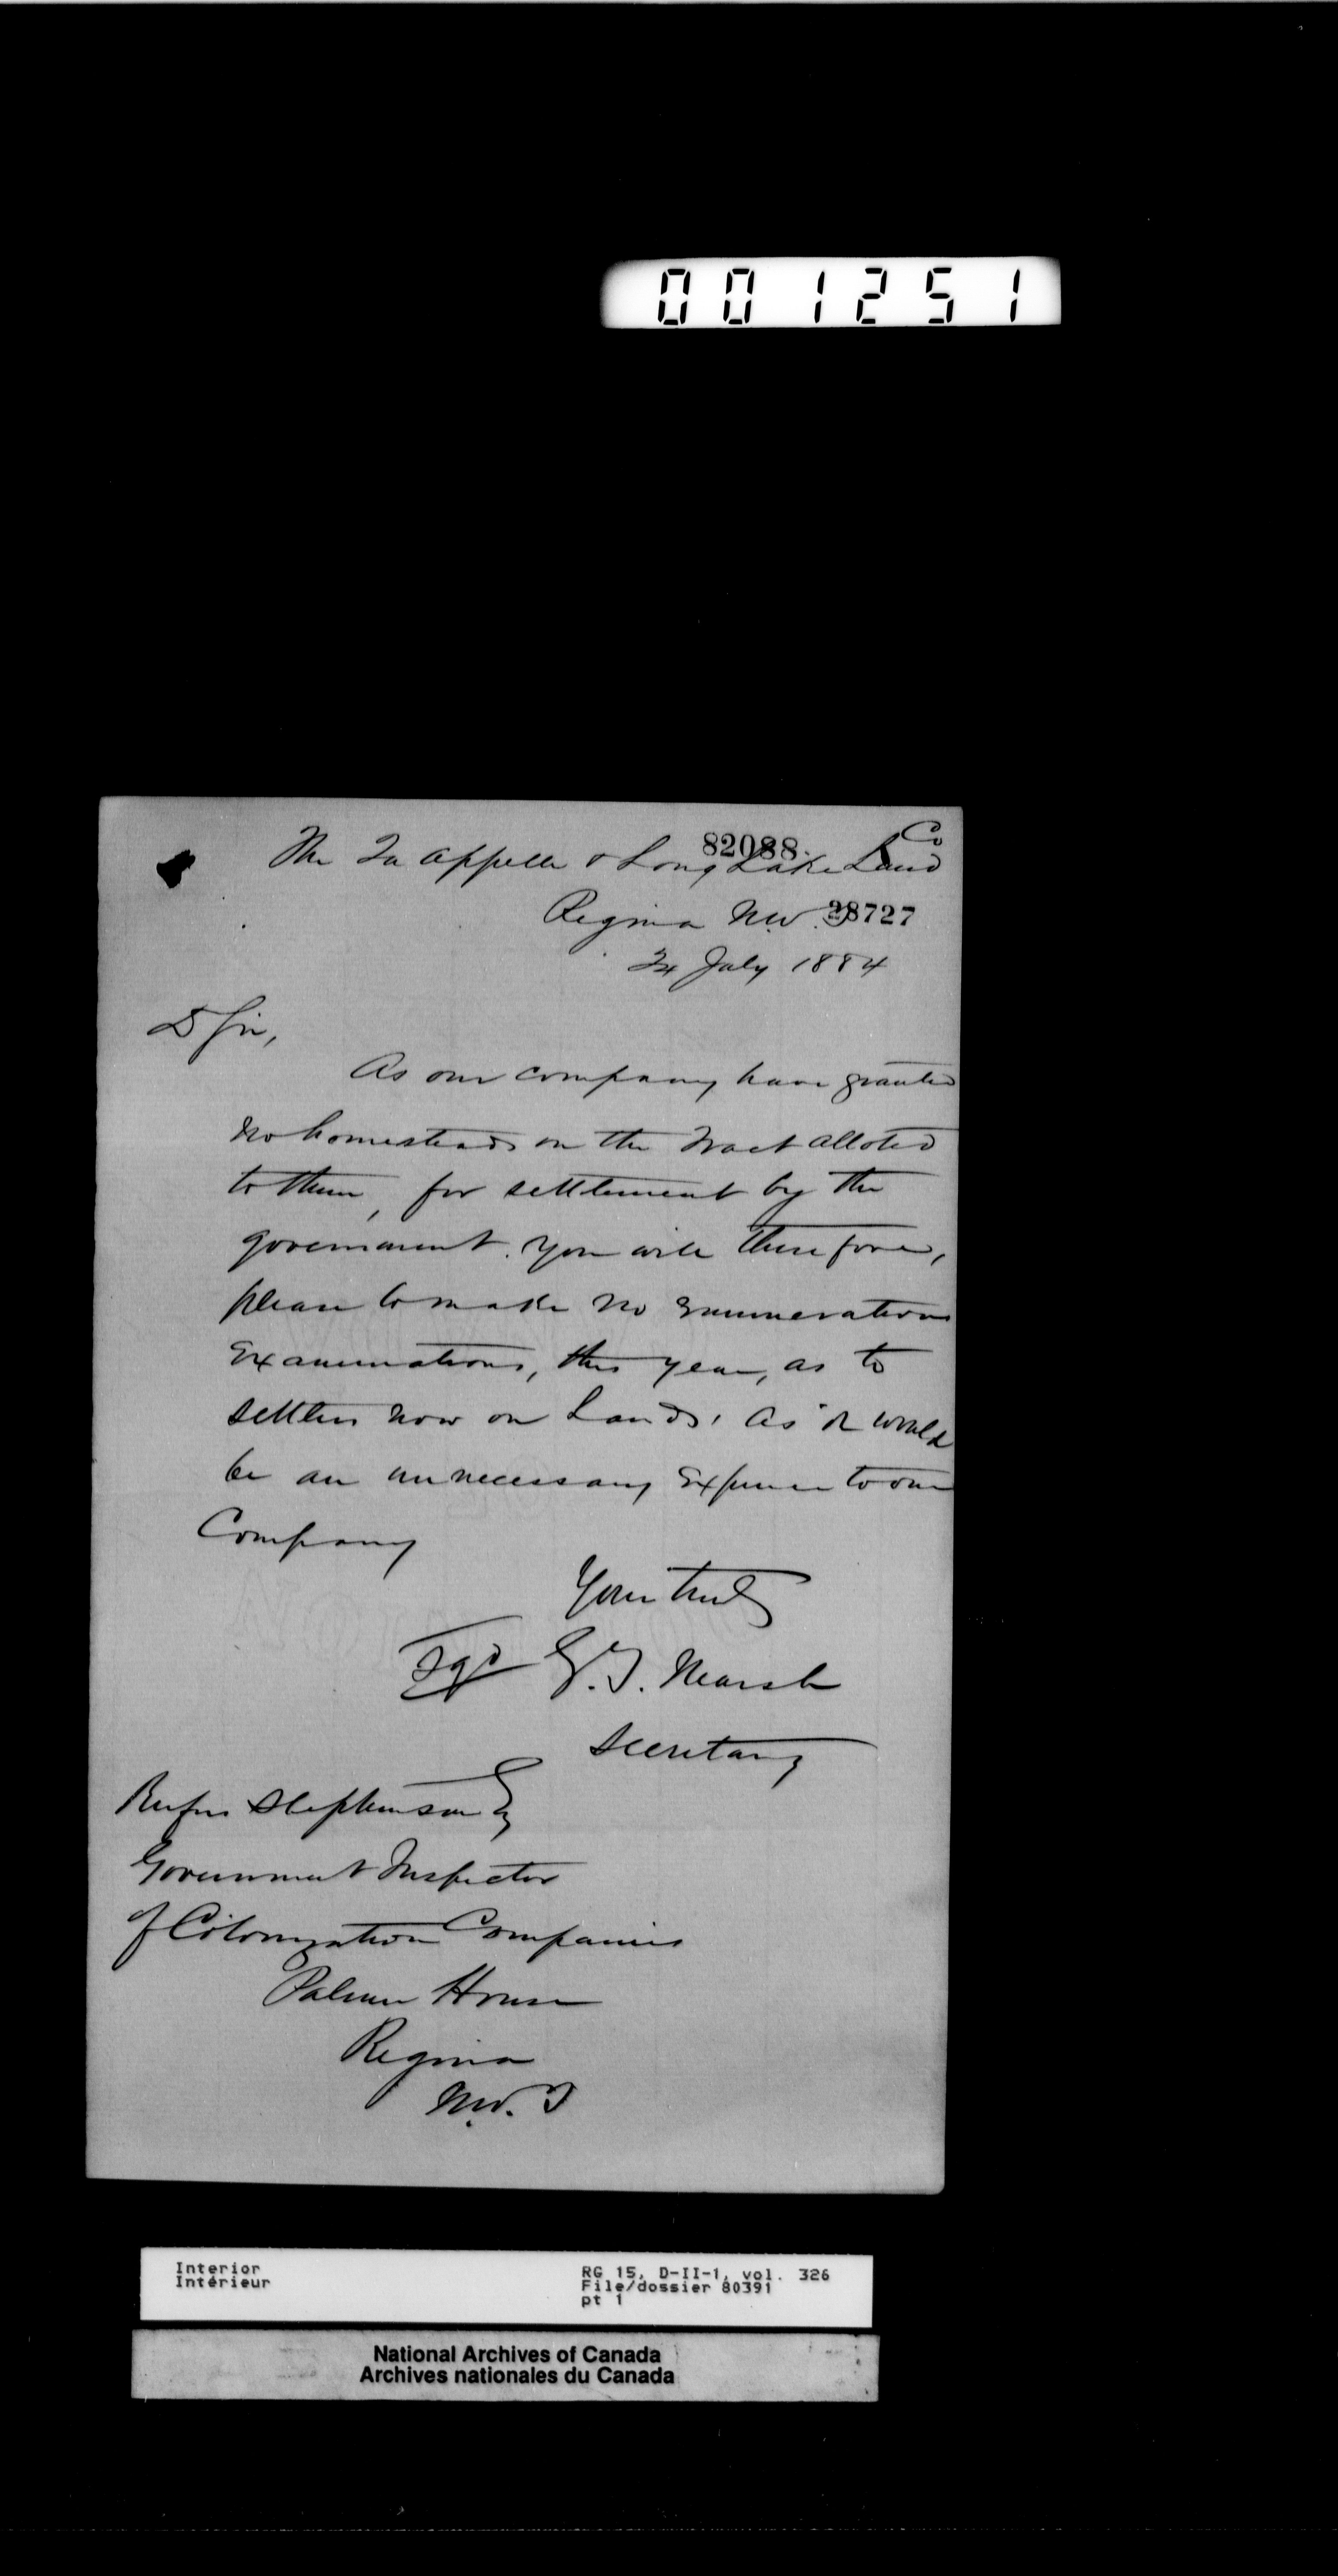 001251
82088
The Qu Appelle & Long Lake Land Co
Regina N.W.T
28727
24 July 1884
D Sir,
As our company have granted
no homesteads on the tract alloted
to them, for settlement by the
government. You will therefore,
please to make no enumerations
Examinations, this year, as to
settlers now on Lands, as it would
be an unnecessary expense to our
Company
Yours truly
Sgd G.T. Marsh
Secretary
Rufus Stephenson Esq
Government Inspector
of Colonization Companies
Palmer House
Regina
N.W.T
Interior
Intérieur
RG 15, D-II-1, vol. 326
File/dossier 80391
pt 1
National Archives of Canada
Archives nationales du Canada